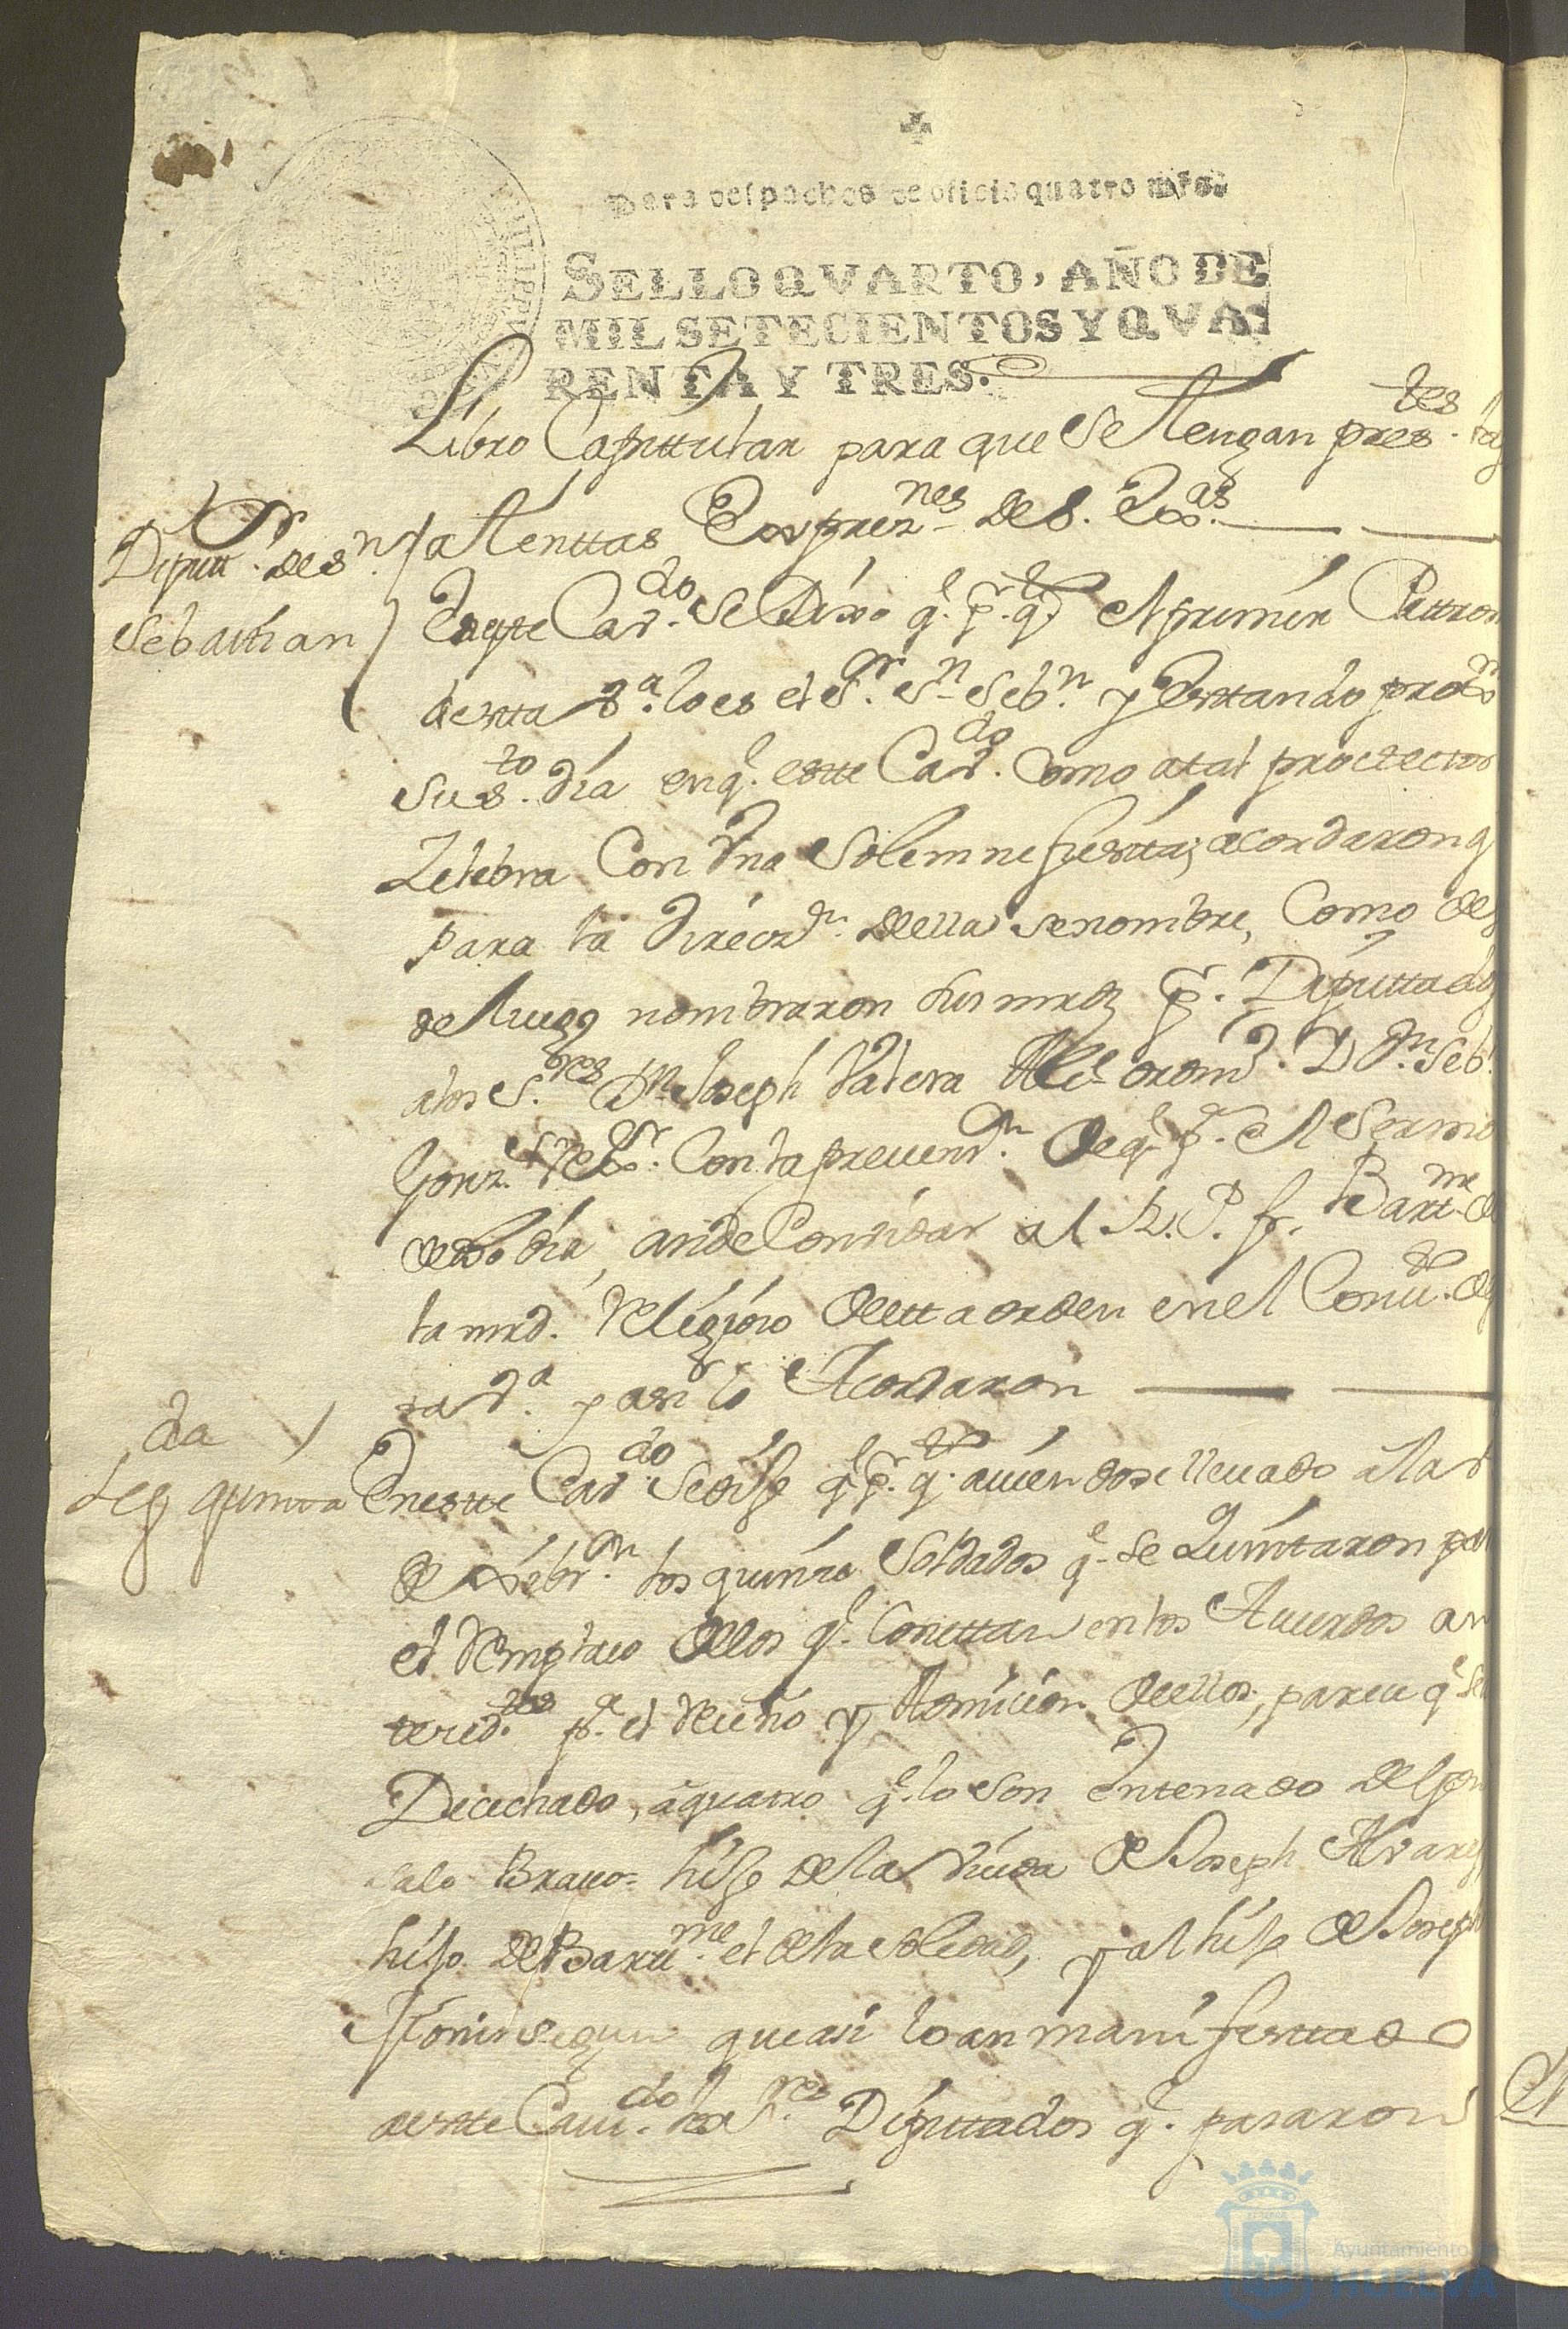 Para despachos de oficio quatro mrs.
SELLO QVARTO, AÑO DE
MIL SETECIENTOS Y QVA-
RENTA Y TRES.
Libro Capittular para que se ttengan pres.tes
attenttas Exprez.nes de S. Ex.as
Diputt.s de s.n
Sebasttian
En este Cav.do se Dixo q.e p.r q.to el primer Pattron
de estta V.a lo es el S.r S.n Seb.n y esttando prox.o
su s.to dia en q.e estte Cav.do como a tal protector
Zelebra con Vna solemne fiestta; acordaron q
para la direcz.n della se nombre, como des
de luego nombraron sus mrds p.r Diputtados
a los S.res D.n Joseph Valera Alc.e ordin.o D.n Seb.
Gonz.s Rex.r con la prevenz.n de q.e p.a el Sermo
de dho dia, an de Convidar al R. P. fr. Bart.me de
la mrd. Religioso de estta orden en el Conv.to de
ta V.a y asi lo Acordaron
da
Seg quinta
En estte Cav.do se dijo q.e p.r q.to aviendose llevado a la V
de xribr.n los quinze soldados q.e se Quinttaron para
el Remplazo de los q.e constan en los Acuerdos an
teced.tes p.a el reciuo y admicion de ellos, parece q.e se
Decechado, a quatro q.e lo son Entenado de Gon
salo Bravo = hijo de la Viuda de Joseph Alvarez
hijo de Bartt.me el de la soledad, y al hijo de Joseph
segun que asi lo an manifesttado
a estte Cavi.do los S.res Diputtados q.e pasaron
Ayuntamiento de
HUELVA